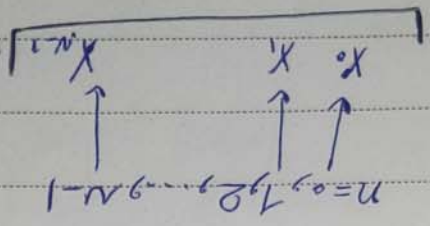 n=0, 1, 2, ..., N-1
X₀ X₁ X_N-1